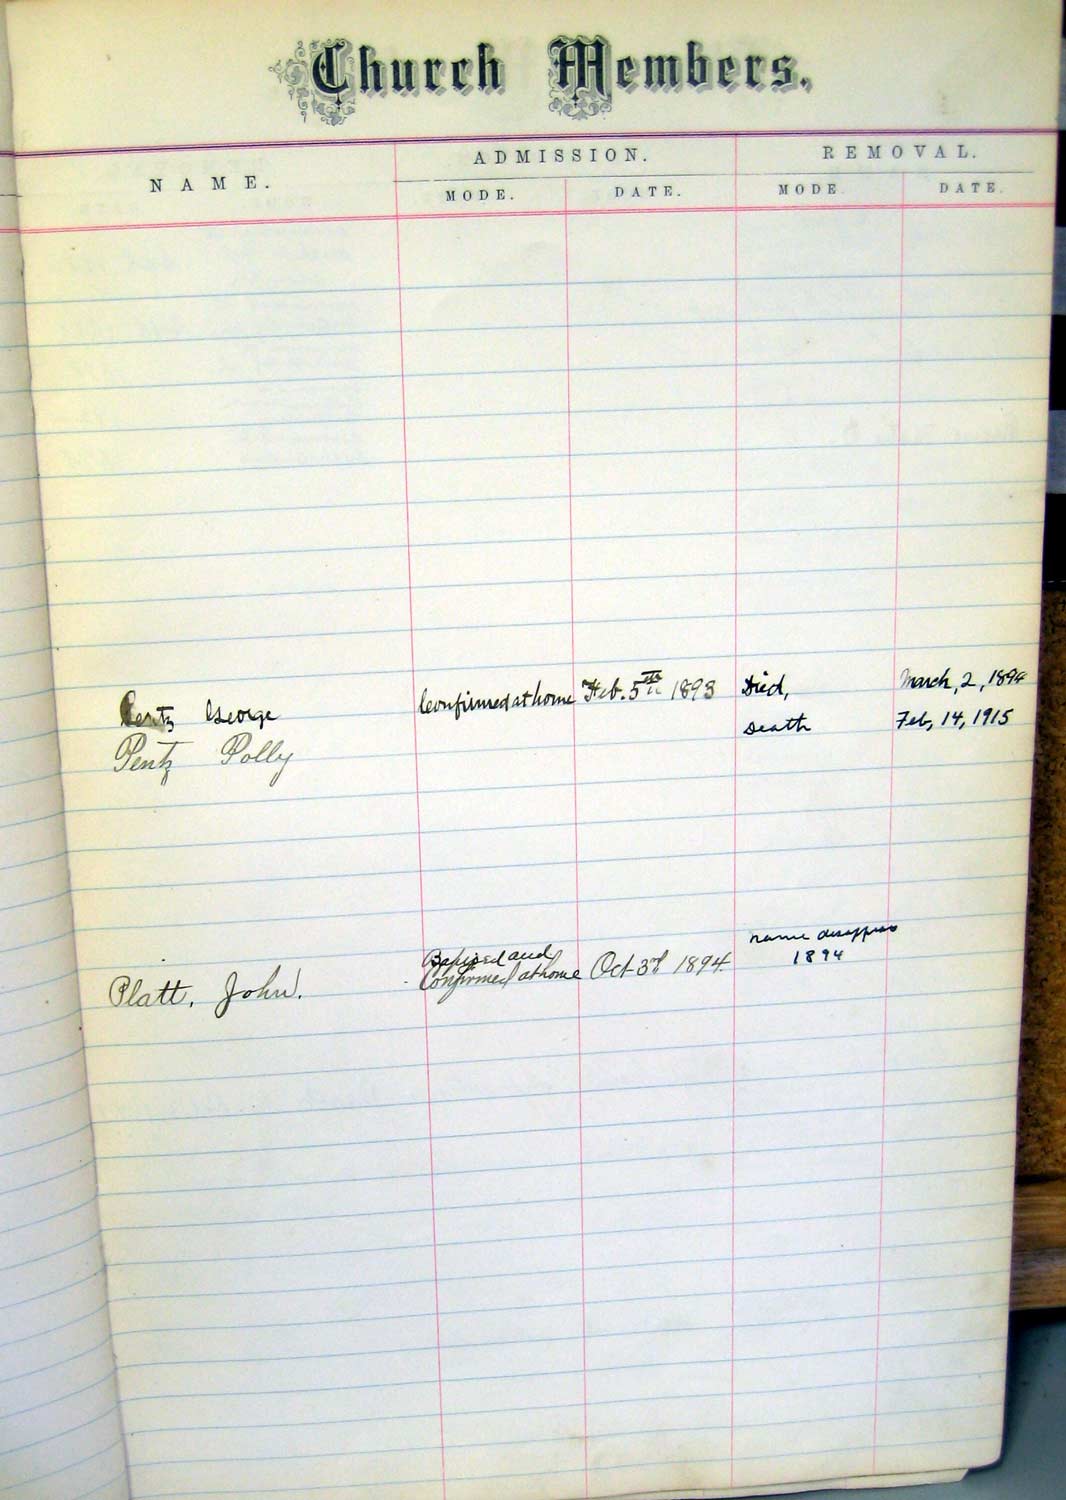 Church Members.
NAME. ADMISSION. REMOVAL.
MODE. DATE. MODE. DATE.
Pentz George Confirmed at home Feb. 5th 1893 Died, March, 2, 1894
Pentz Polly Death Feb, 14, 1915
Platt, John. Bapized and Confirmed at home Oct 3rd 1894 name disappears 1894